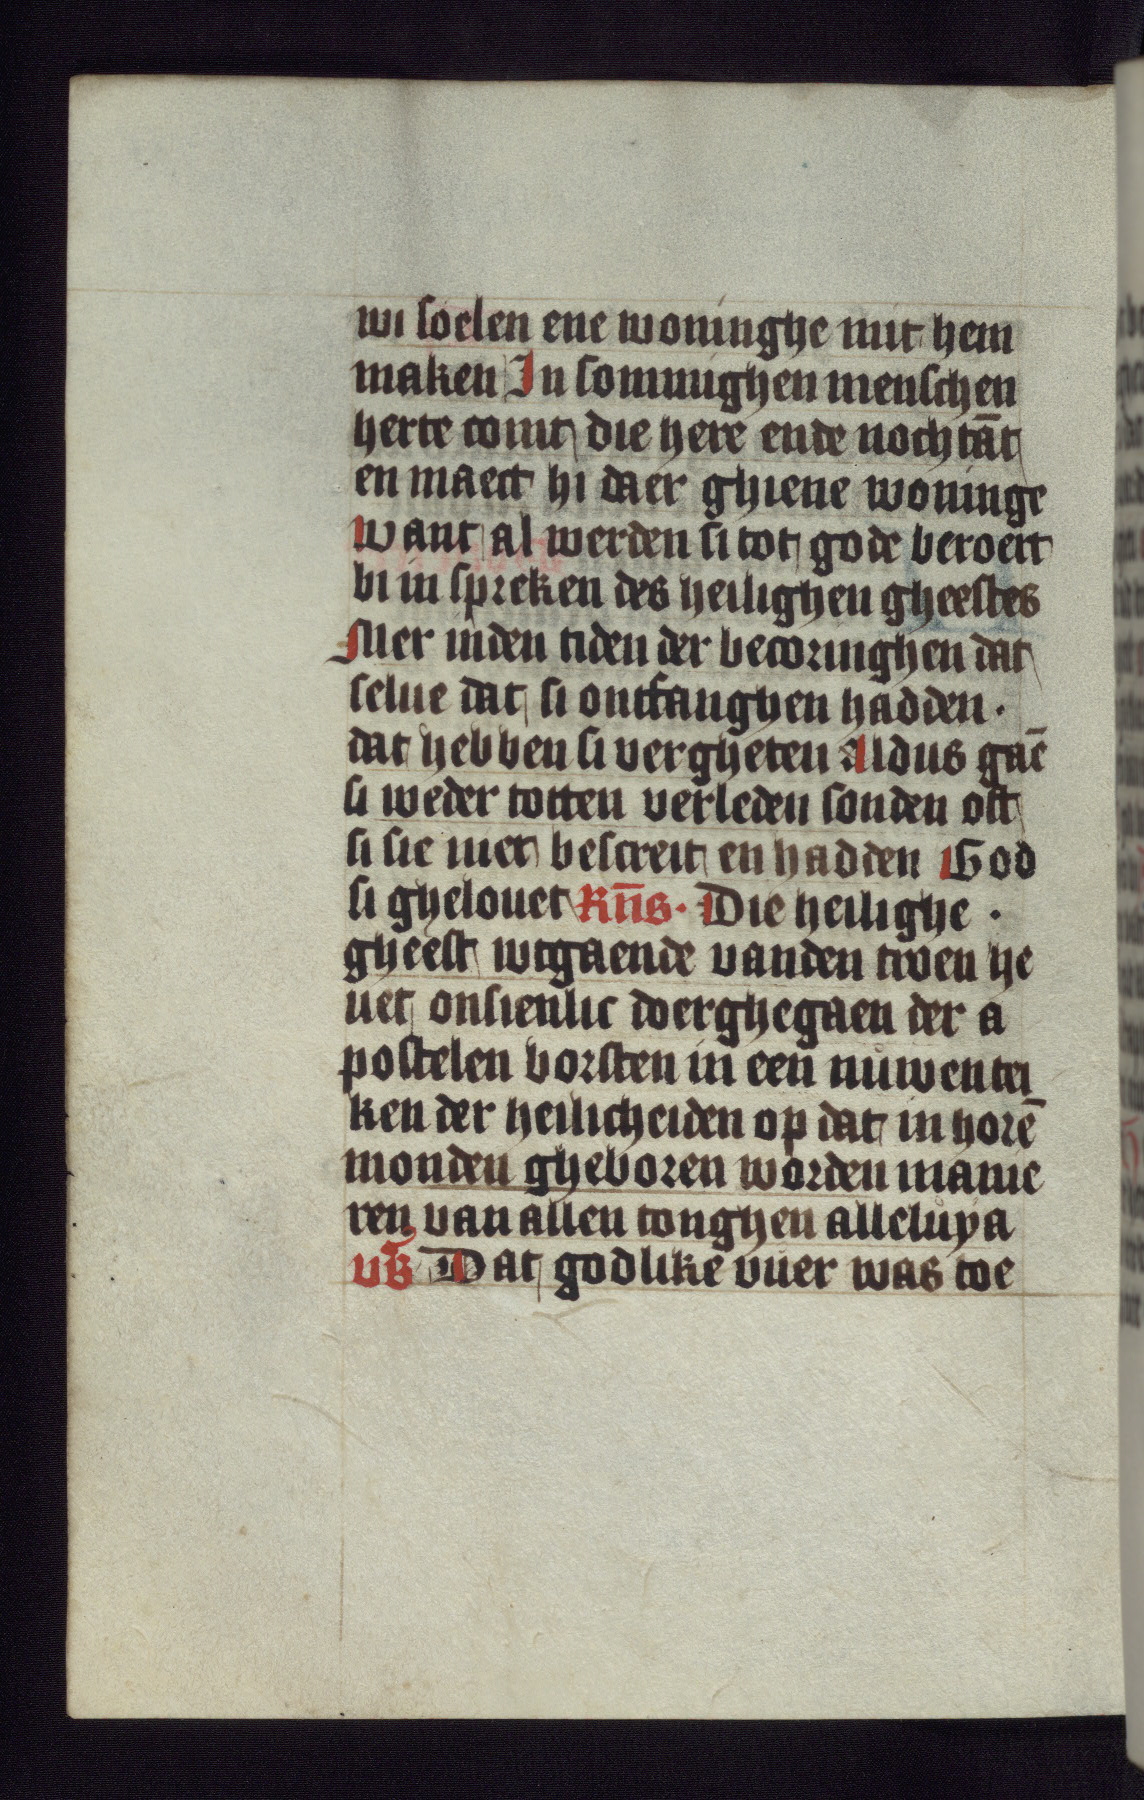 wi soelen ene woninghe mit hem
maken In sommighen menschen
herte comt die here ende nochtāt
en maect hi daer ghiene woninge
want al werden si tot gode beroert
bi in spreken des heilighen gheestes
Mer inden tiden der becoringhen dat
selue dat si ontfanghen hadden·
dat hebben si vergheten Aldus gaē
si weder totten verleden sonden oft
si sie niet bescreit en hadden God
si ghelouet Rn̄s· Die heilighe·
gheest wtgaende vanden troen he
uet onsienlic doerghegaen der a
postelen borsten in een nuwen tei
ken der heilicheiden op dat in horē
monden gheboren worden manie
ren van allen tonghen alleluya
vs Dat godlike vuer was toe